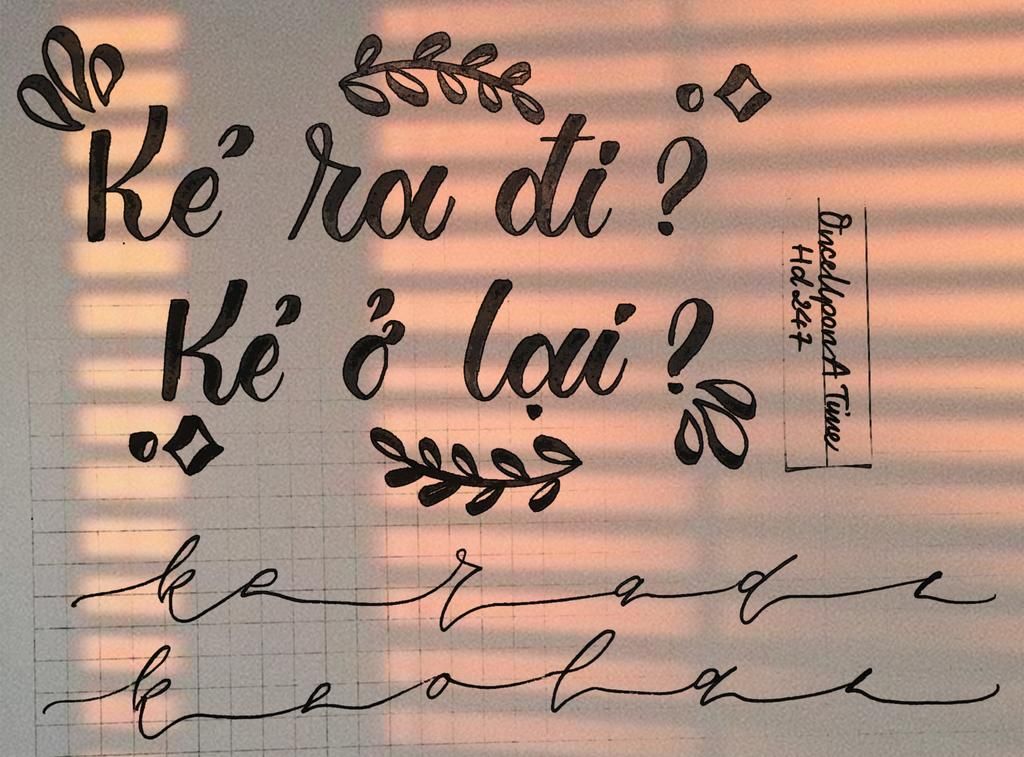 Kẻ ra đi ?
Kẻ ở lại ?
OnceUponA Time
Hd 247
ke ra di
ke o lai